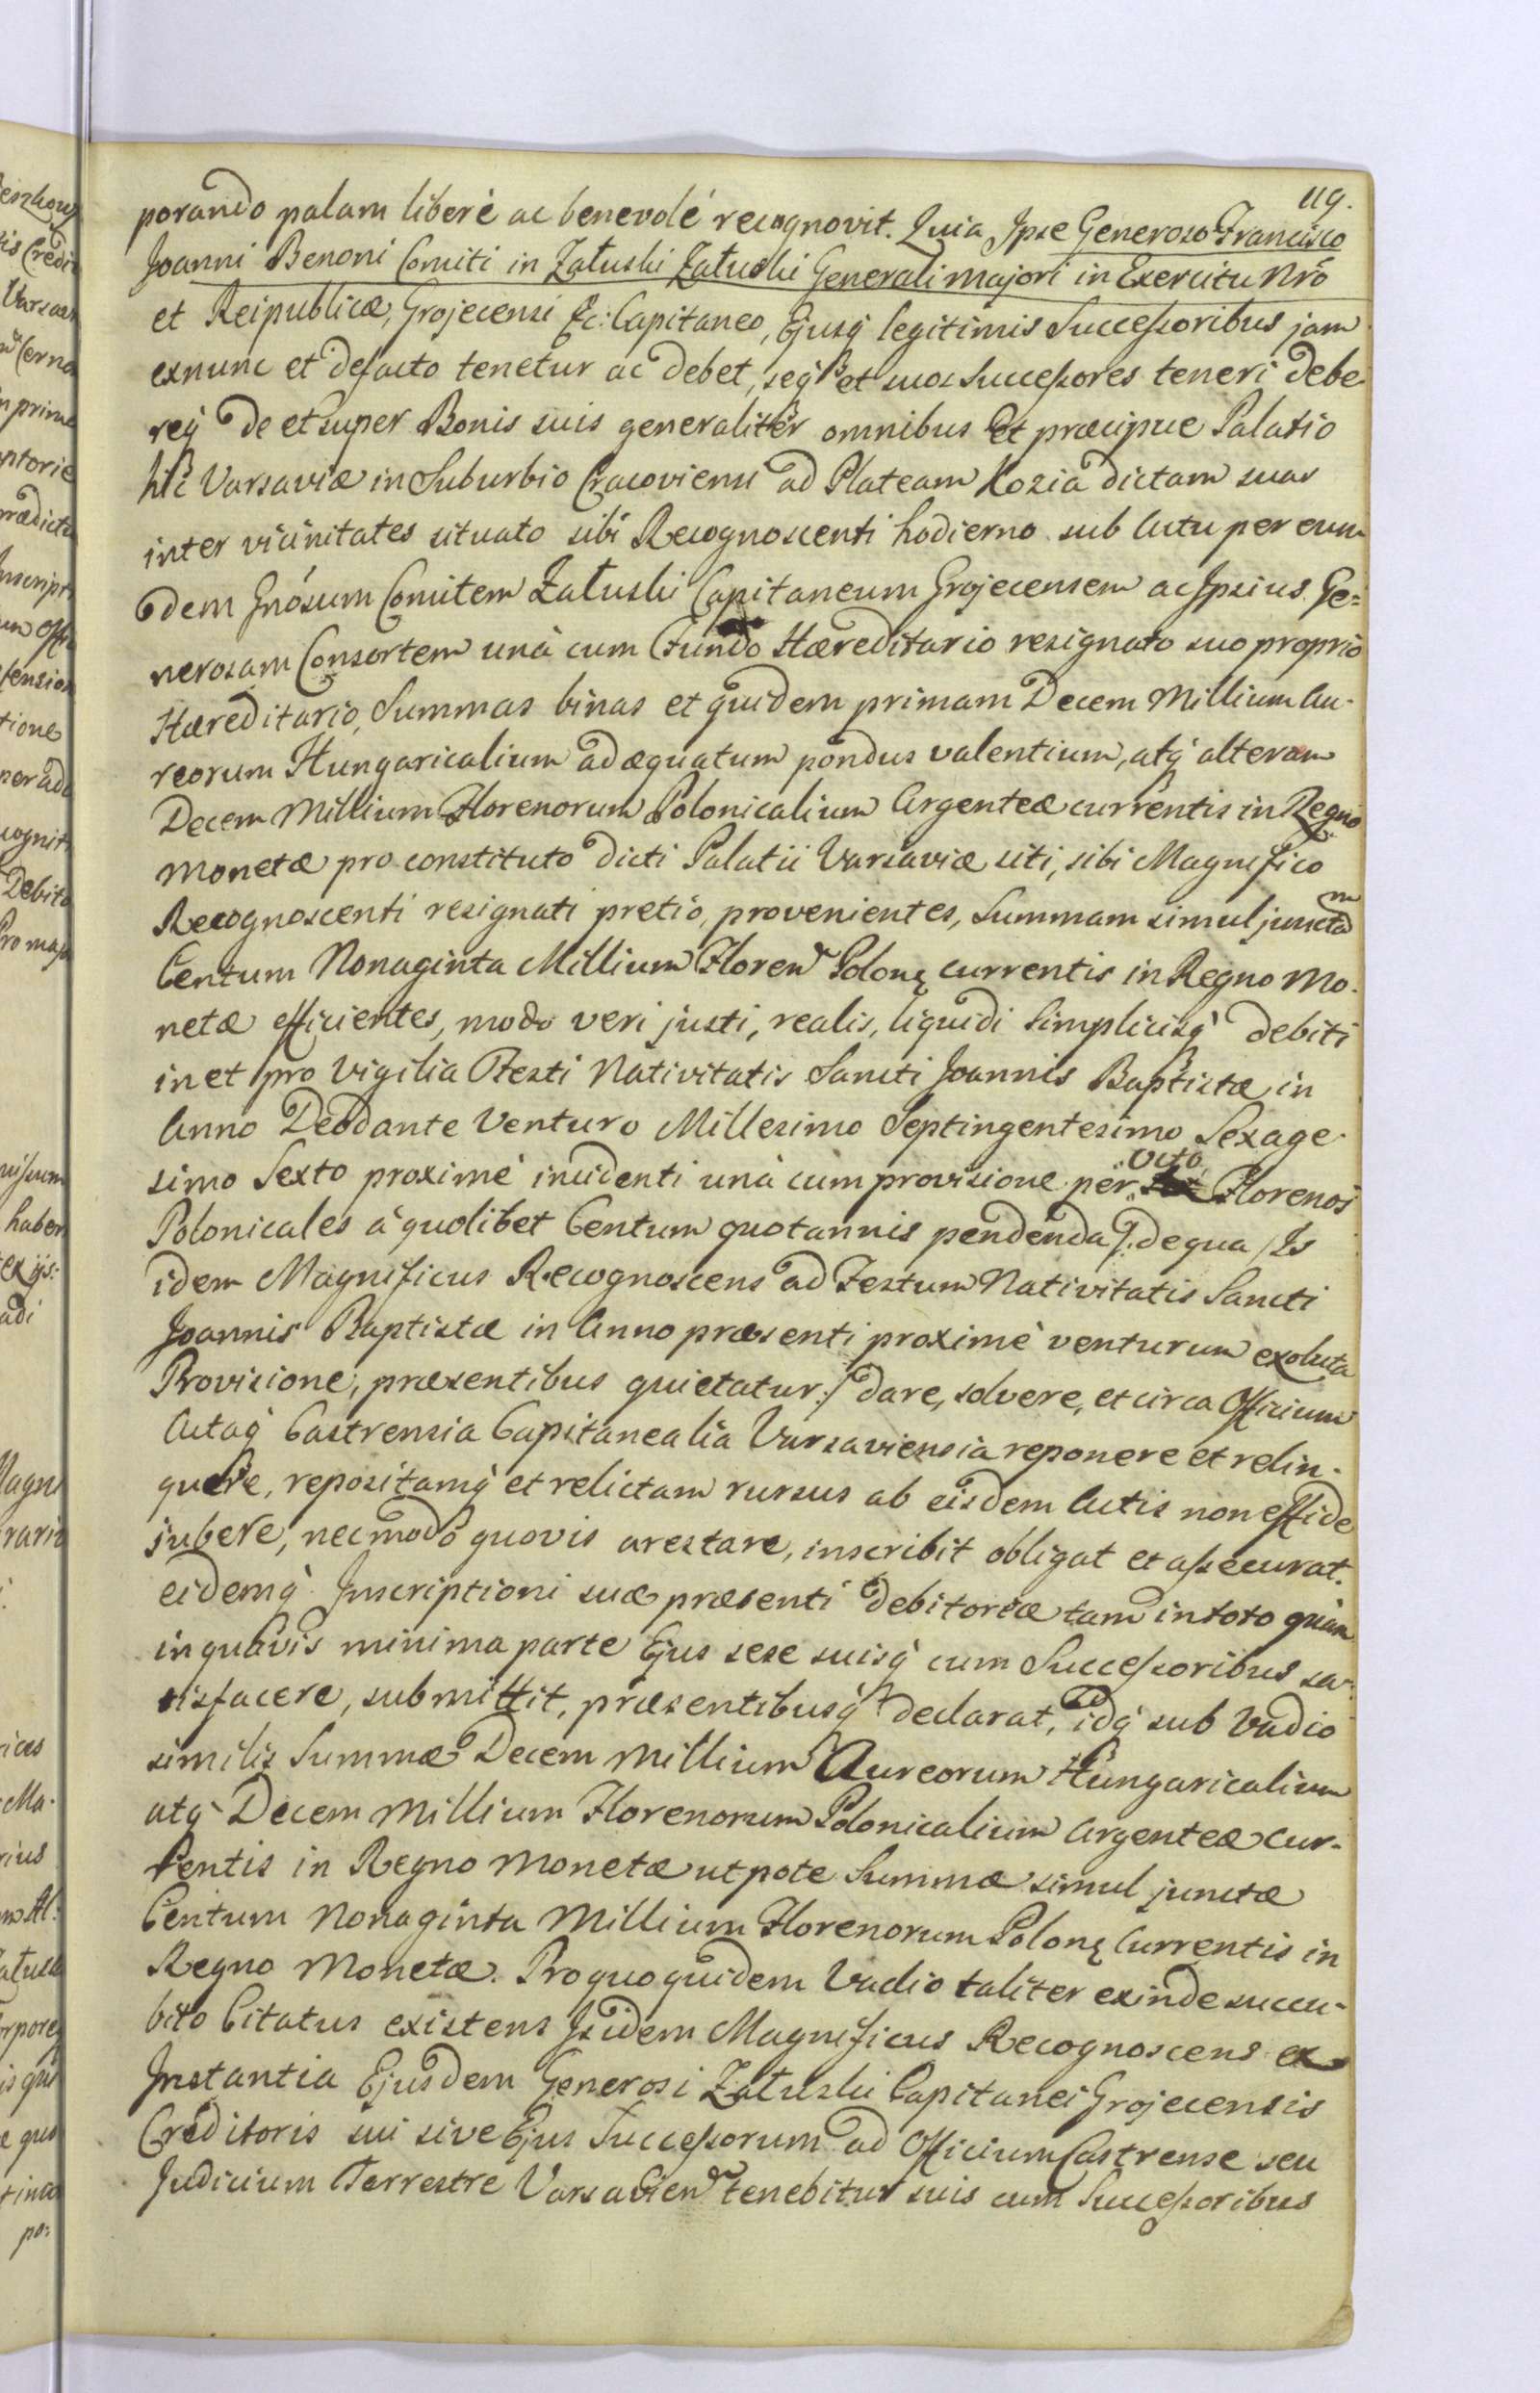 119.
porando palam liberè ac benevolé recognovit. Quia Ipse Generoso Francisco
Joanni Benoni Comiti in Załuski Załuski Generali Majori in Exercitu Nrõ
et Reipublicæ, Grojecensi &c: Capitaneo, Ejusq́ legitimis Successoribus jam
exnunc et defacto tenetur ac debet, seq́ et suos Successores teneri debe-
req́ de et super Bonis suis generalitèr omnibus et præcipue Palatio
hìc Varsaviæ in Suburbio Cracoviensi ad Plateam Kozia dictam suas
inter vicinitates situato sibi Recognoscenti hodierno sub Actu per eun-
dem Gnósum Comitem Załuski Capitaneum Grojecensem ac Ipsius Ge=
nerosam Consortem unà cum Fundo Hæreditario resignato suo proprio
Hæreditario, Summas binas et quidem primam Decem Millium Au-
reorum Hungaricalium adæquatum pondus valentium, atq́ alteram
Decem Millium Florenorum Polonicalium Argenteæ currentis in Regno
Monetæ pro constituto dicti Palatii Varsaviæ siti, sibi Magnifico
Recognoscenti resignati pretio, provenientes, Summam simul junctam
Centum Nonaginta Millium Floren Polonę currentis in Regno Mo-
netæ efficientes, modo veri justi, realis, liquidi Simplicisq́ debiti
in et pro Vigilia Festi Nativitatis Sancti Joannis Baptistæ in
Anno Deodante Venturo Millesimo Septingentesimo Sexage-
simo Sexto proximè incidenti unà cum provisione per octo Florenos
Polonicales à quolibet Centum quotannis pendenda /: de qua Is
idem Magnificus Recognoscens ad Festum Nativitatis Sancti
Joannis Baptistæ in Anno præsenti proximè venturum exoluta
Provisione, præsentibus quietatur :/ dare, solvere, et circa Officium
Actaq́ Castrensia Capitanealia Varsaviensia reponere et relin-
quere, repositamq́ et relictam rursus ab eisdem Actis non effide
jubere, nec modo quovis arestare, inscribit obligat et assecurat.
eidemq́ Inscriptioni suæ præsenti debitoriæ tam in toto quàm
in quavis minima parte Ejus sese suisq́ cum Successoribus sa-
tisfacere, submittit, præsentibusq́ declarat, idq́ sub Vadio
similis Summæ Decem Millium Aureorum Hungaricalium
atq́ Decem Millium Florenorum Polonicalium Argenteæ cur-
rentis in Regno Monetæ utpote Summæ simul junctæ
Centum Nonaginta Millium Florenorum Polonę Currentis in
Regno Monetæ. Pro quo quidem Vadio taliter exinde succu-
bito Citatus existens Isidem Magnificus Recognoscens ex
Instantia Ejusdem Generosi Załuski Capitanei Grojecensis
Creditoris sui sive Ejus Successorum ad Officium Castrense seu
Judicium Terrestre Varsavien tenebitur suis cum Successoribus